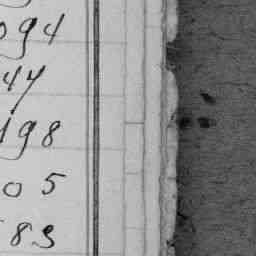 094
47
198
05
83